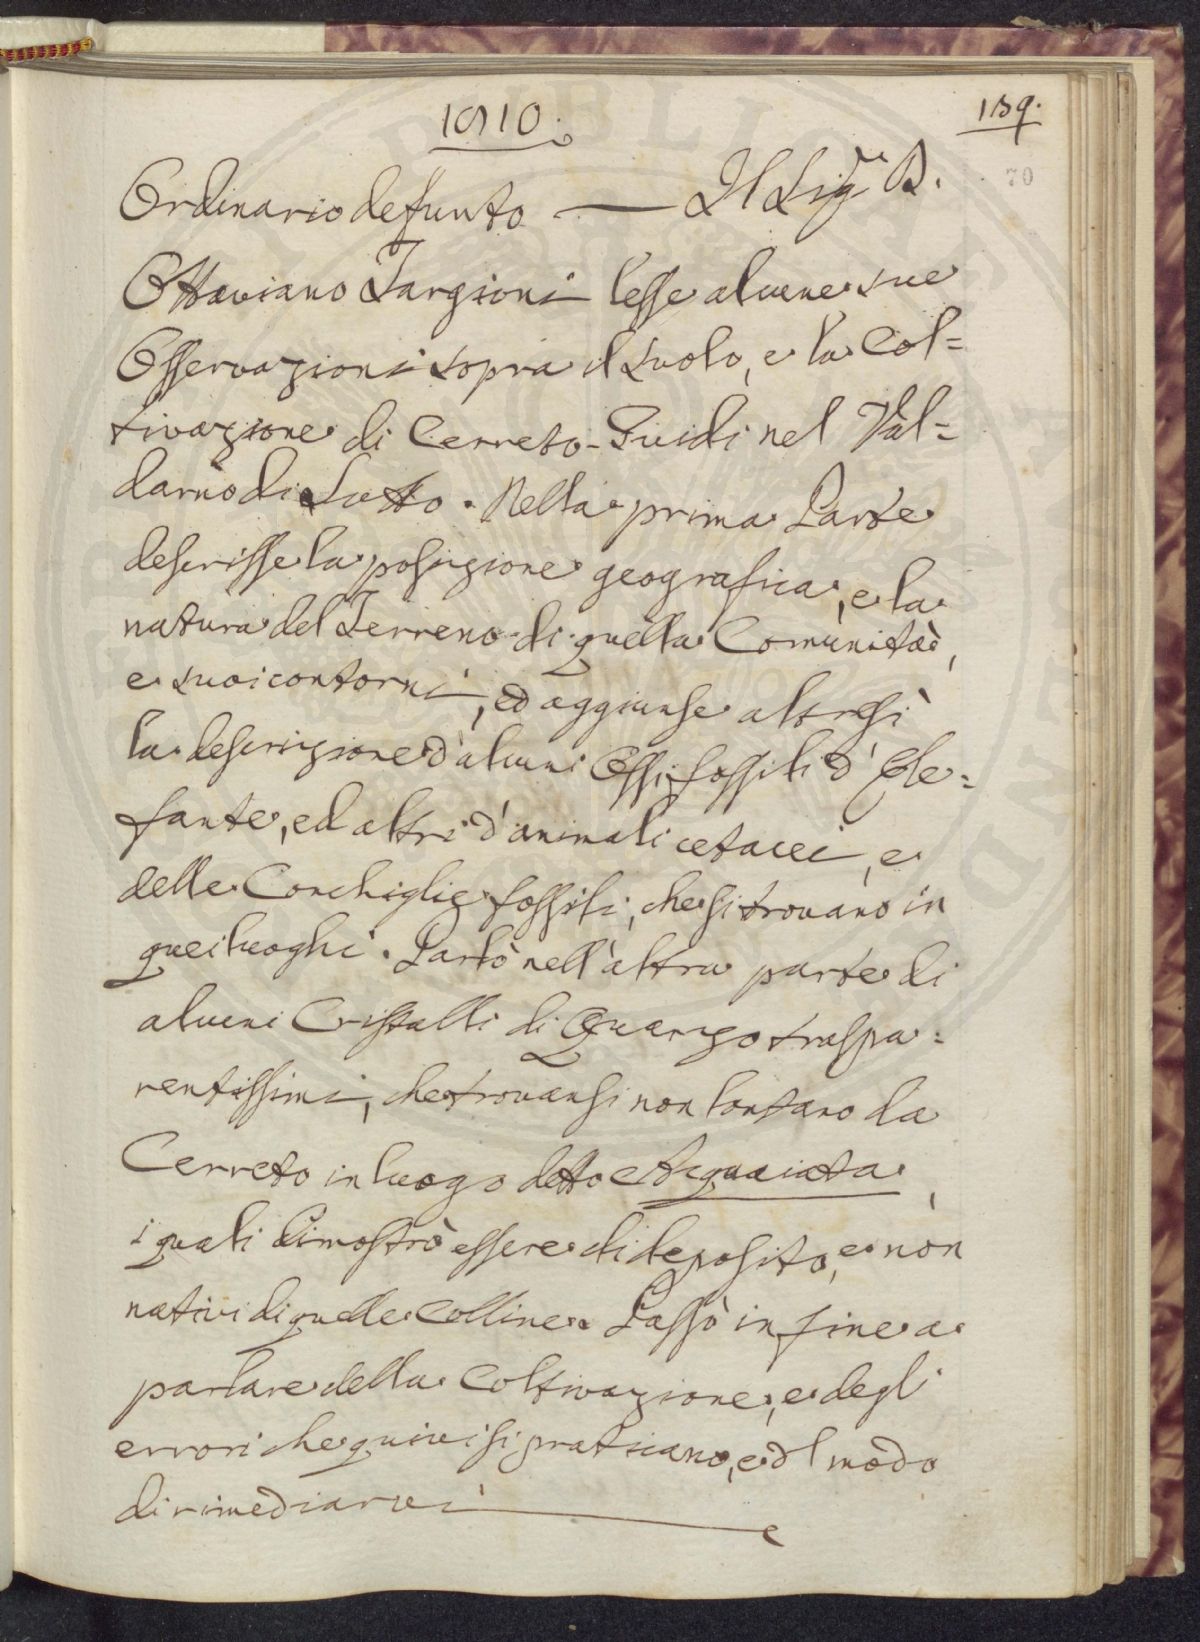 1810.
139.
70
Ordinario defunto — Il Sig.r D.
Ottaviano Targioni lesse alcune sue
Osservazioni sopra il suolo, e la Col=
tivazione di Cerreto-Guidi nel Val=
darno di Sotto. Nella prima Parte
descrisse la posizione geografica, e la
natura del Terreno di quella Comunità,
e suoi contorni, ed aggiunse altresì
la descrizione d'alcuni Ossi fossili d'Ele=
fante, ed altri d'animali cetacei, e
delle Conchiglie fossili, che si trovano in
quei luoghi. Parlò nell'altra parte di
alcuni Cristalli di Quarzo traspa=
rentissimi, che trovansi non lontano da
Cerreto in luogo detto Acquaiata,
i quali dimostrò essere di deposito, e non
nativi di quelle Colline. Passò in fine a
parlare della Coltivazione, e degli
errori che quivi si praticano, e d'l modo
di rimediarvi